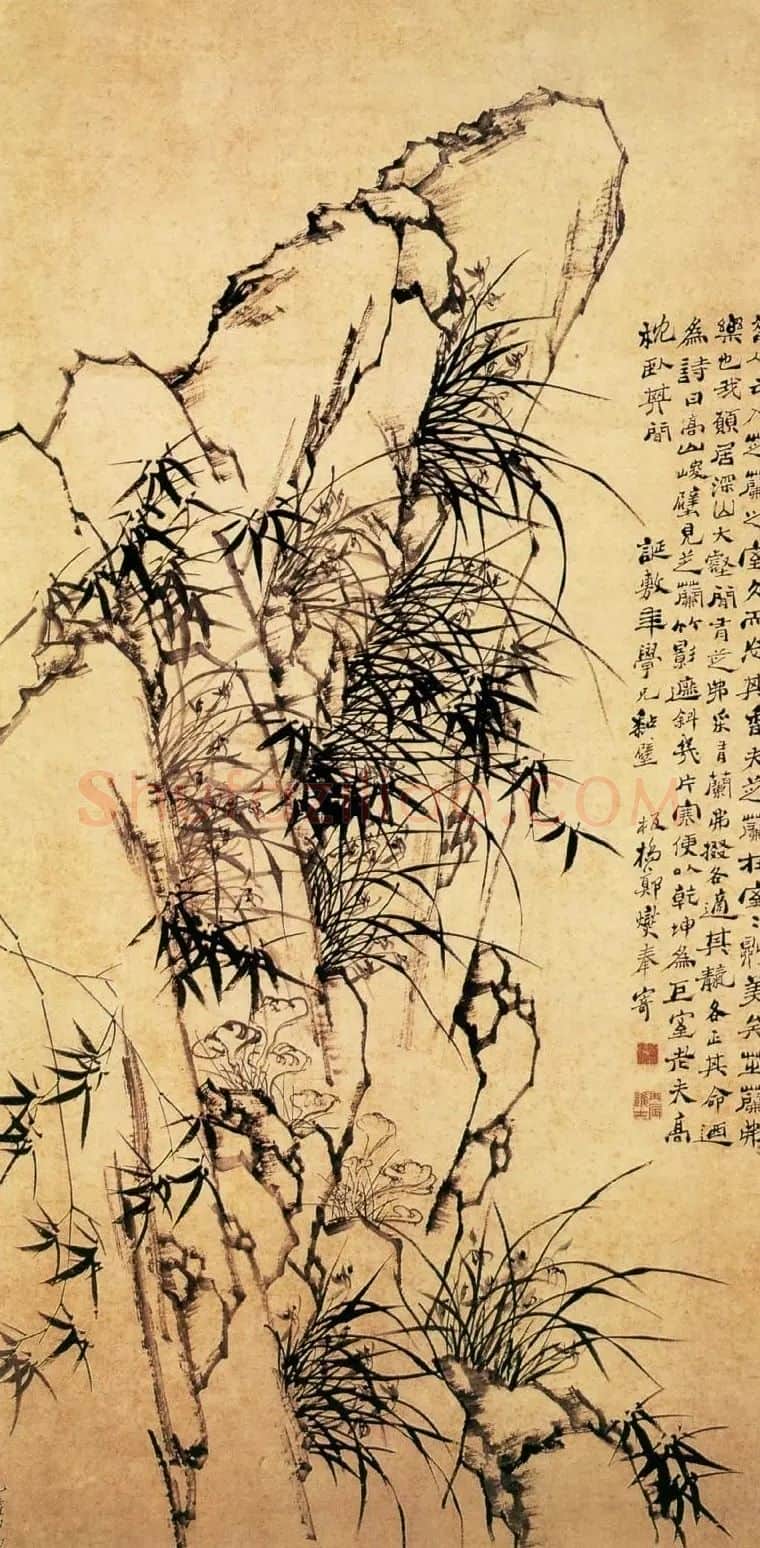 昔人云入芝蘭之室久而忘其香夫芝蘭在室〻則美矣芝蘭弗
樂也我願居深山大壑間有芝弗采有蘭弗掇各適其靝各正其命迺
為詩曰高山峻壁見芝蘭竹影遮斜幾片寒便以乾坤為巨室老夫高
枕臥其間 誕敷年學兄黏壁 板橋鄭燮奉寄